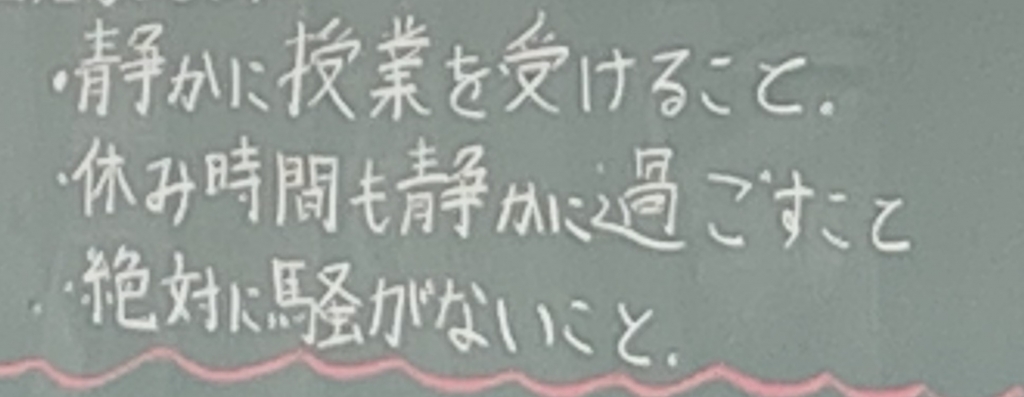 ・静かに授業を受けること.
・休み時間も静かに過ごすこと
・絶対に騒がないこと.